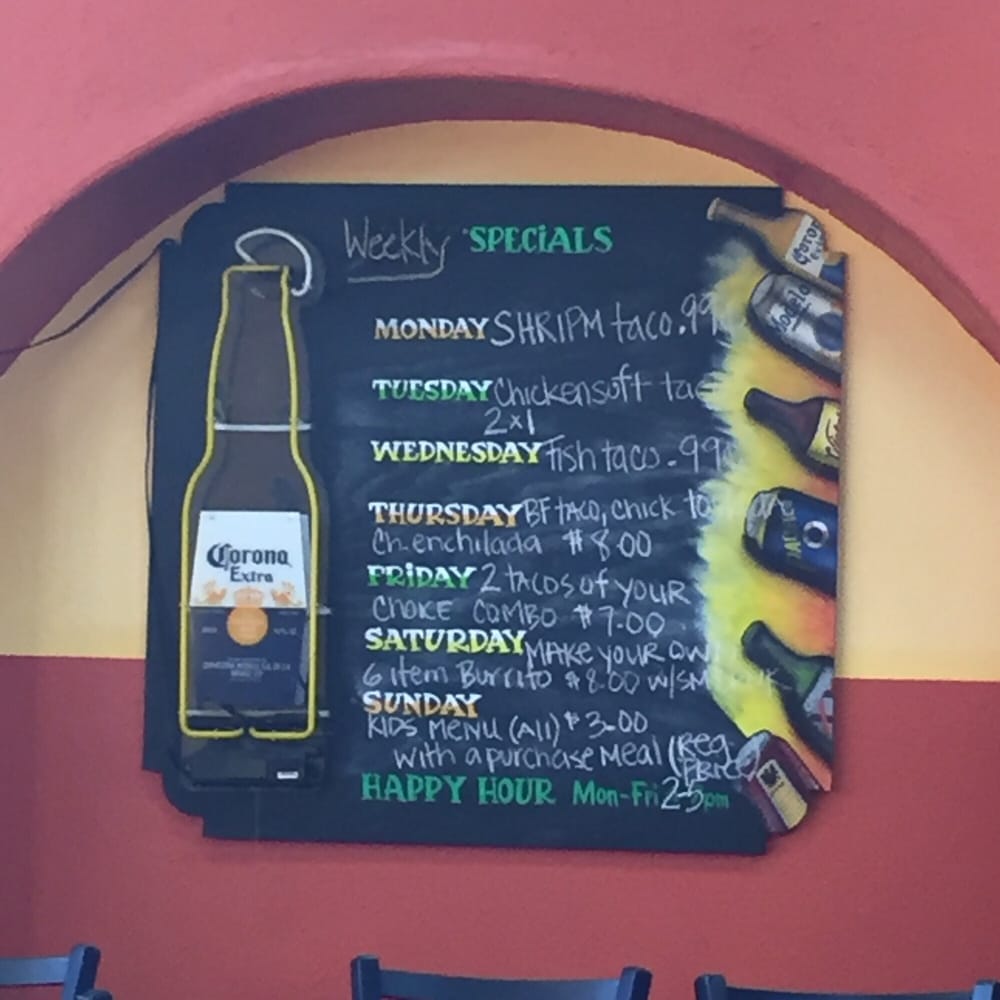 Weekly SPECiALS
MONDAY SHRIPM taco .99
TUESDAY Chicken soft
2x1
WEDNESDAY Fish taco .99
THURSDAY BF tACO, Chick
Ch. enchilada $8.00
FRiDAY 2 tACOS of YOUR
CHOICE COMBO $7.00
SATURDAY MAKE YOUR OWN
6 item Burrito $8.00 w/SM
SUNDAY
KIDS MENU (All) $3.00
with a purchase Meal (Reg.
PRICE)
HAPPY HOUR Mon-Fri 2-5pm
Corona
Extra
Corona
Extra
Modelo